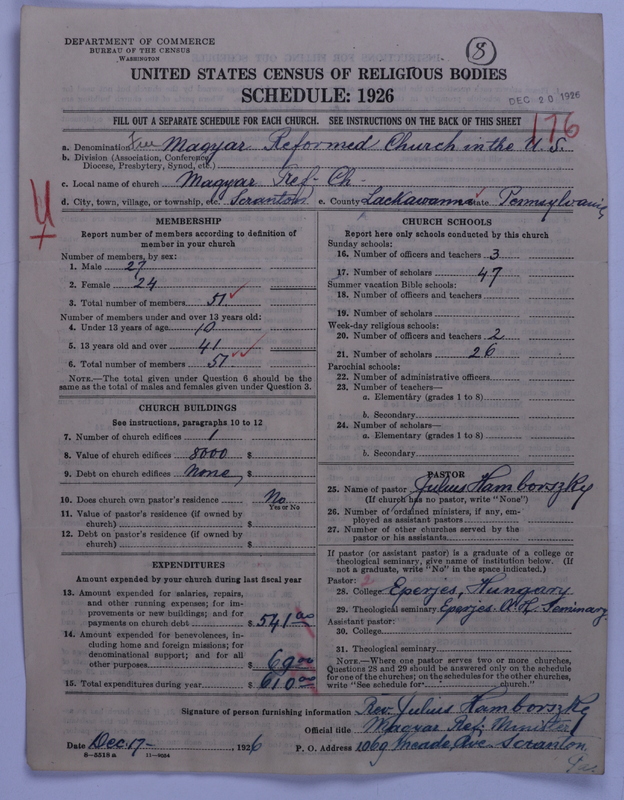 DEPARTMENT OF COMMERCE
BUREAU OF THE CENSUS
WASHINGTON
8
UNITED STATES CENSUS OF RELIGIOUS BODIES
SCHEDULE: 1926
DEC 20 1926
FILL OUT A SEPARATE SCHEDULE FOR EACH CHURCH. SEE INSTRUCTIONS ON THE BACK OF THIS SHEET
176
a. Denomination Free Magyar Reformed Church in the U.S.
b. Division (Association, Conference, Diocese, Presbytery, Synod, etc.)
c. Local name of church Magyar Ref. Ch.
d. City, town, village, or township, etc. Scranton e. County Lackawanna State Pennsylvania
MEMBERSHIP
Report number of members according to definition of
member in your church
Number of members, by sex:
1. Male 27
2. Female 24
3. Total number of members 51
Number of members under and over 13 years old:
4. Under 13 years of age 10
5. 13 years old and over 41
6. Total number of members 51
NOTE.—The total given under Question 6 should be the
same as the total of males and females given under Question 3.
CHURCH BUILDINGS
See instructions, paragraphs 10 to 12
7. Number of church edifices 1
8. Value of church edifices 8000 $
9. Debt on church edifices None $
10. Does church own pastor's residence No
Yes or No
11. Value of pastor's residence (if owned by
church) $
12. Debt on pastor's residence (if owned by
church) $
EXPENDITURES
Amount expended by your church during last fiscal year
13. Amount expended for salaries, repairs,
and other running expenses; for im-
provements or new buildings; and for
payments on church debt $ 541 00
14. Amount expended for benevolences, in-
cluding home and foreign missions; for
denominational support; and for all
other purposes $ 69 00
15. Total expenditures during year $ 610 00
CHURCH SCHOOLS
Report here only schools conducted by this church
Sunday schools:
16. Number of officers and teachers 3
17. Number of scholars 47
Summer vacation Bible schools:
18. Number of officers and teachers
19. Number of scholars
Week-day religious schools:
20. Number of officers and teachers 2
21. Number of scholars 26
Parochial schools:
22. Number of administrative officers
23. Number of teachers—
a. Elementary (grades 1 to 8)
b. Secondary
24. Number of scholars—
a. Elementary (grades 1 to 8)
b. Secondary
PASTOR
25. Name of pastor Julius Hamborszky
(If church has no pastor, write "None")
26. Number of ordained ministers, if any, em-
ployed as assistant pastors
27. Number of other churches served by the
pastor or his assistants
If pastor (or assistant pastor) is a graduate of a college or
theological seminary, give name of institution below. (If
not a graduate, write "No" in the space indicated.)
Pastor:
28. College Eperjes, Hungary
29. Theological seminary Eperjes Seminary
Assistant pastor:
30. College
31. Theological seminary
NOTE.—Where one pastor serves two or more churches,
Questions 28 and 29 should be answered only on the schedule
for one of the churches; on the schedules for the other churches,
write "See schedule for church."
Signature of person furnishing information Rev. Julius Hamborszky
Official title Magyar Ref. Minister
Date Dec. 17, 1926 P. O. Address 1069 Meade Ave. Scranton
Pa.
8—5518 a 11—9034